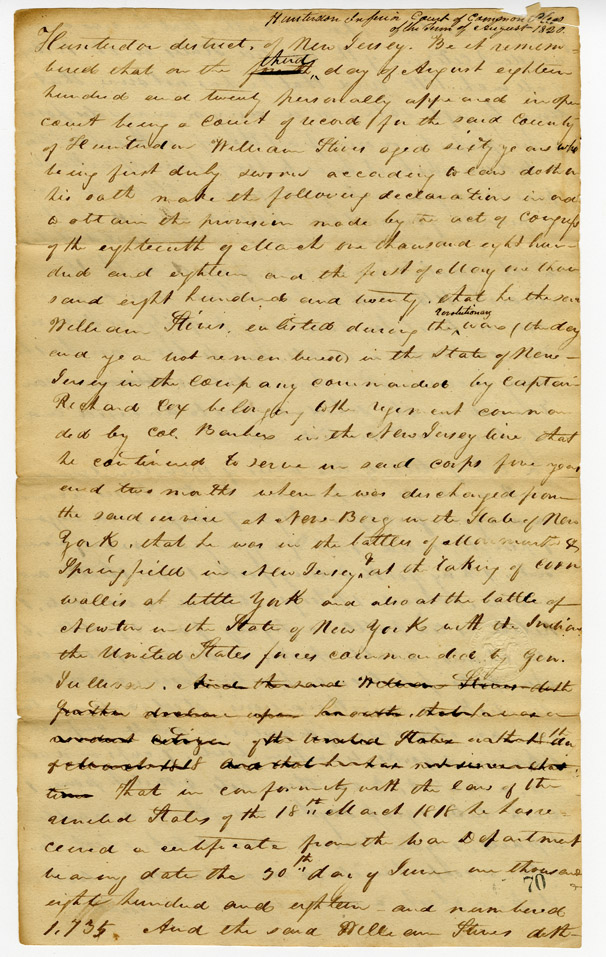 Hunterdon Inferior Court of Common Pleas
of the Term of August 1820.
Hunterdon district, of New Jersey. Be it remem-
bered that on the fourth third day of August eighteen
hundred and twenty personally appeared in open
court being a Court of record for the said County
of Hunterdon William Stives aged sixty years who
being first duly sworn according to law doth on
his oath make the following declaration in order
to obtain the provision made by the act of Congress
of the eighteenth of March one thousand eight hun-
dred and eighteen and the first of May one thou
sand eight hundred and twenty. that he the said
William Stives, enlisted during the revolutionary war, (the day
and year not remembered) in the State of New-
Jersey in the Company commanded by Captain
Richard Cox belonging to the regiment comman
ded by Col. Barber in the New Jersey line that
he continued to serve in said corps five years
and two months when he was discharged from
the said service at New Borg in the State of New
York. that he was in the battles of Monmouth &
Springfield in New Jersey, & at the taking of Corn
wallis at little York and also at the battle of
Newton in the State of New York with the Indians
the United States forces commanded by Gen.
Sullivan. And the said William Stives doth
further declare upon his oath, that he was a
resident citizen of the United States on the 18th day
of March 1818 and that he has not since that
time That in conformity with the law of the
United States of the 18th March 1818 he has re-
ceived a certificate from the War Department
bearing date the 30th day of June one thousand
eight hundred and eighteen and numbered
70
1,735. And the said William Stives doth